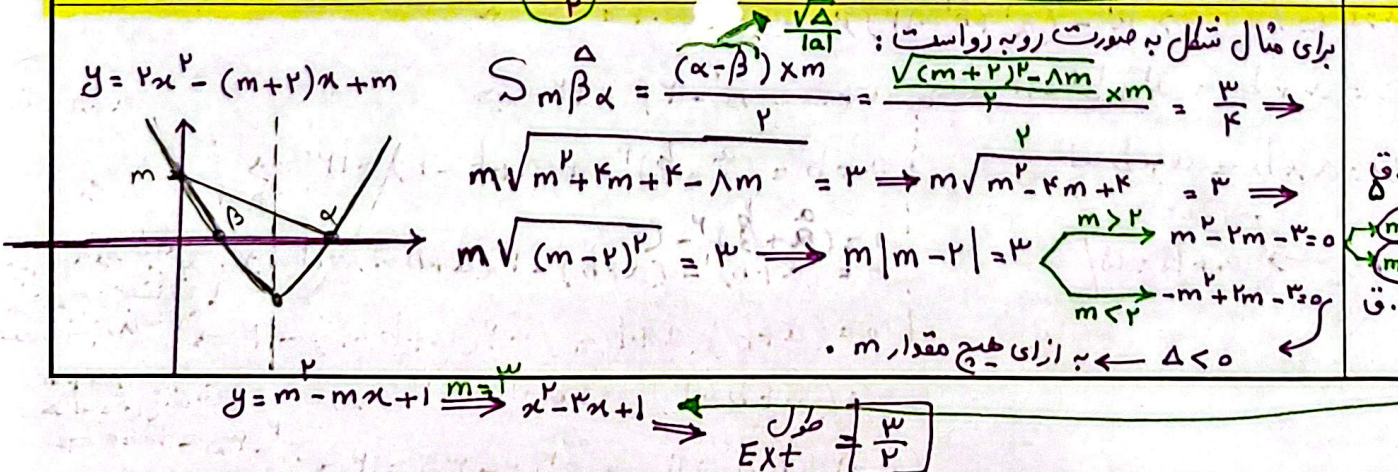 برای مثال شکل به صورت روبه رو است :
y = ۲x² - (m+۲)x + m
S mβ̂α = (α-β)×m / ۲ = √((m+۲)² - ۸m) / ۲ ×m / ۲ = ۳/۴ ⟹
√Δ / |a|
m√(m² + ۴m + ۴ - ۸m) = ۳ ⟹ m√(m² - ۴m + ۴) = ۳ ⟹
m√((m-۲)²) = ۳ ⟹ m|m-۲| = ۳
m>۲ → m² - ۲m - ۳ = ۰
m<۲ → -m² + ۲m - ۳ = ۰
Δ < ۰ ← به ازای هیچ مقدار m .
m β α
y = m² - mx + ۱ ⟹ m=۳ x² - ۳x + ۱ ⟹ طول Ext = ۳/۲